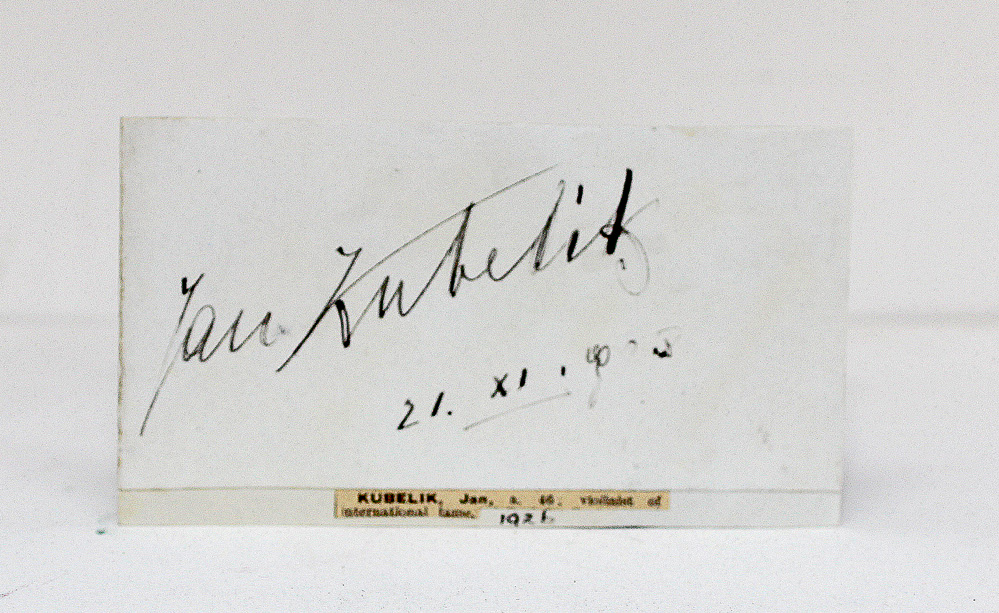 Jan Kubelik
21. XI.
KUBELIK, Jan, a. 46, violinist of
international fame.